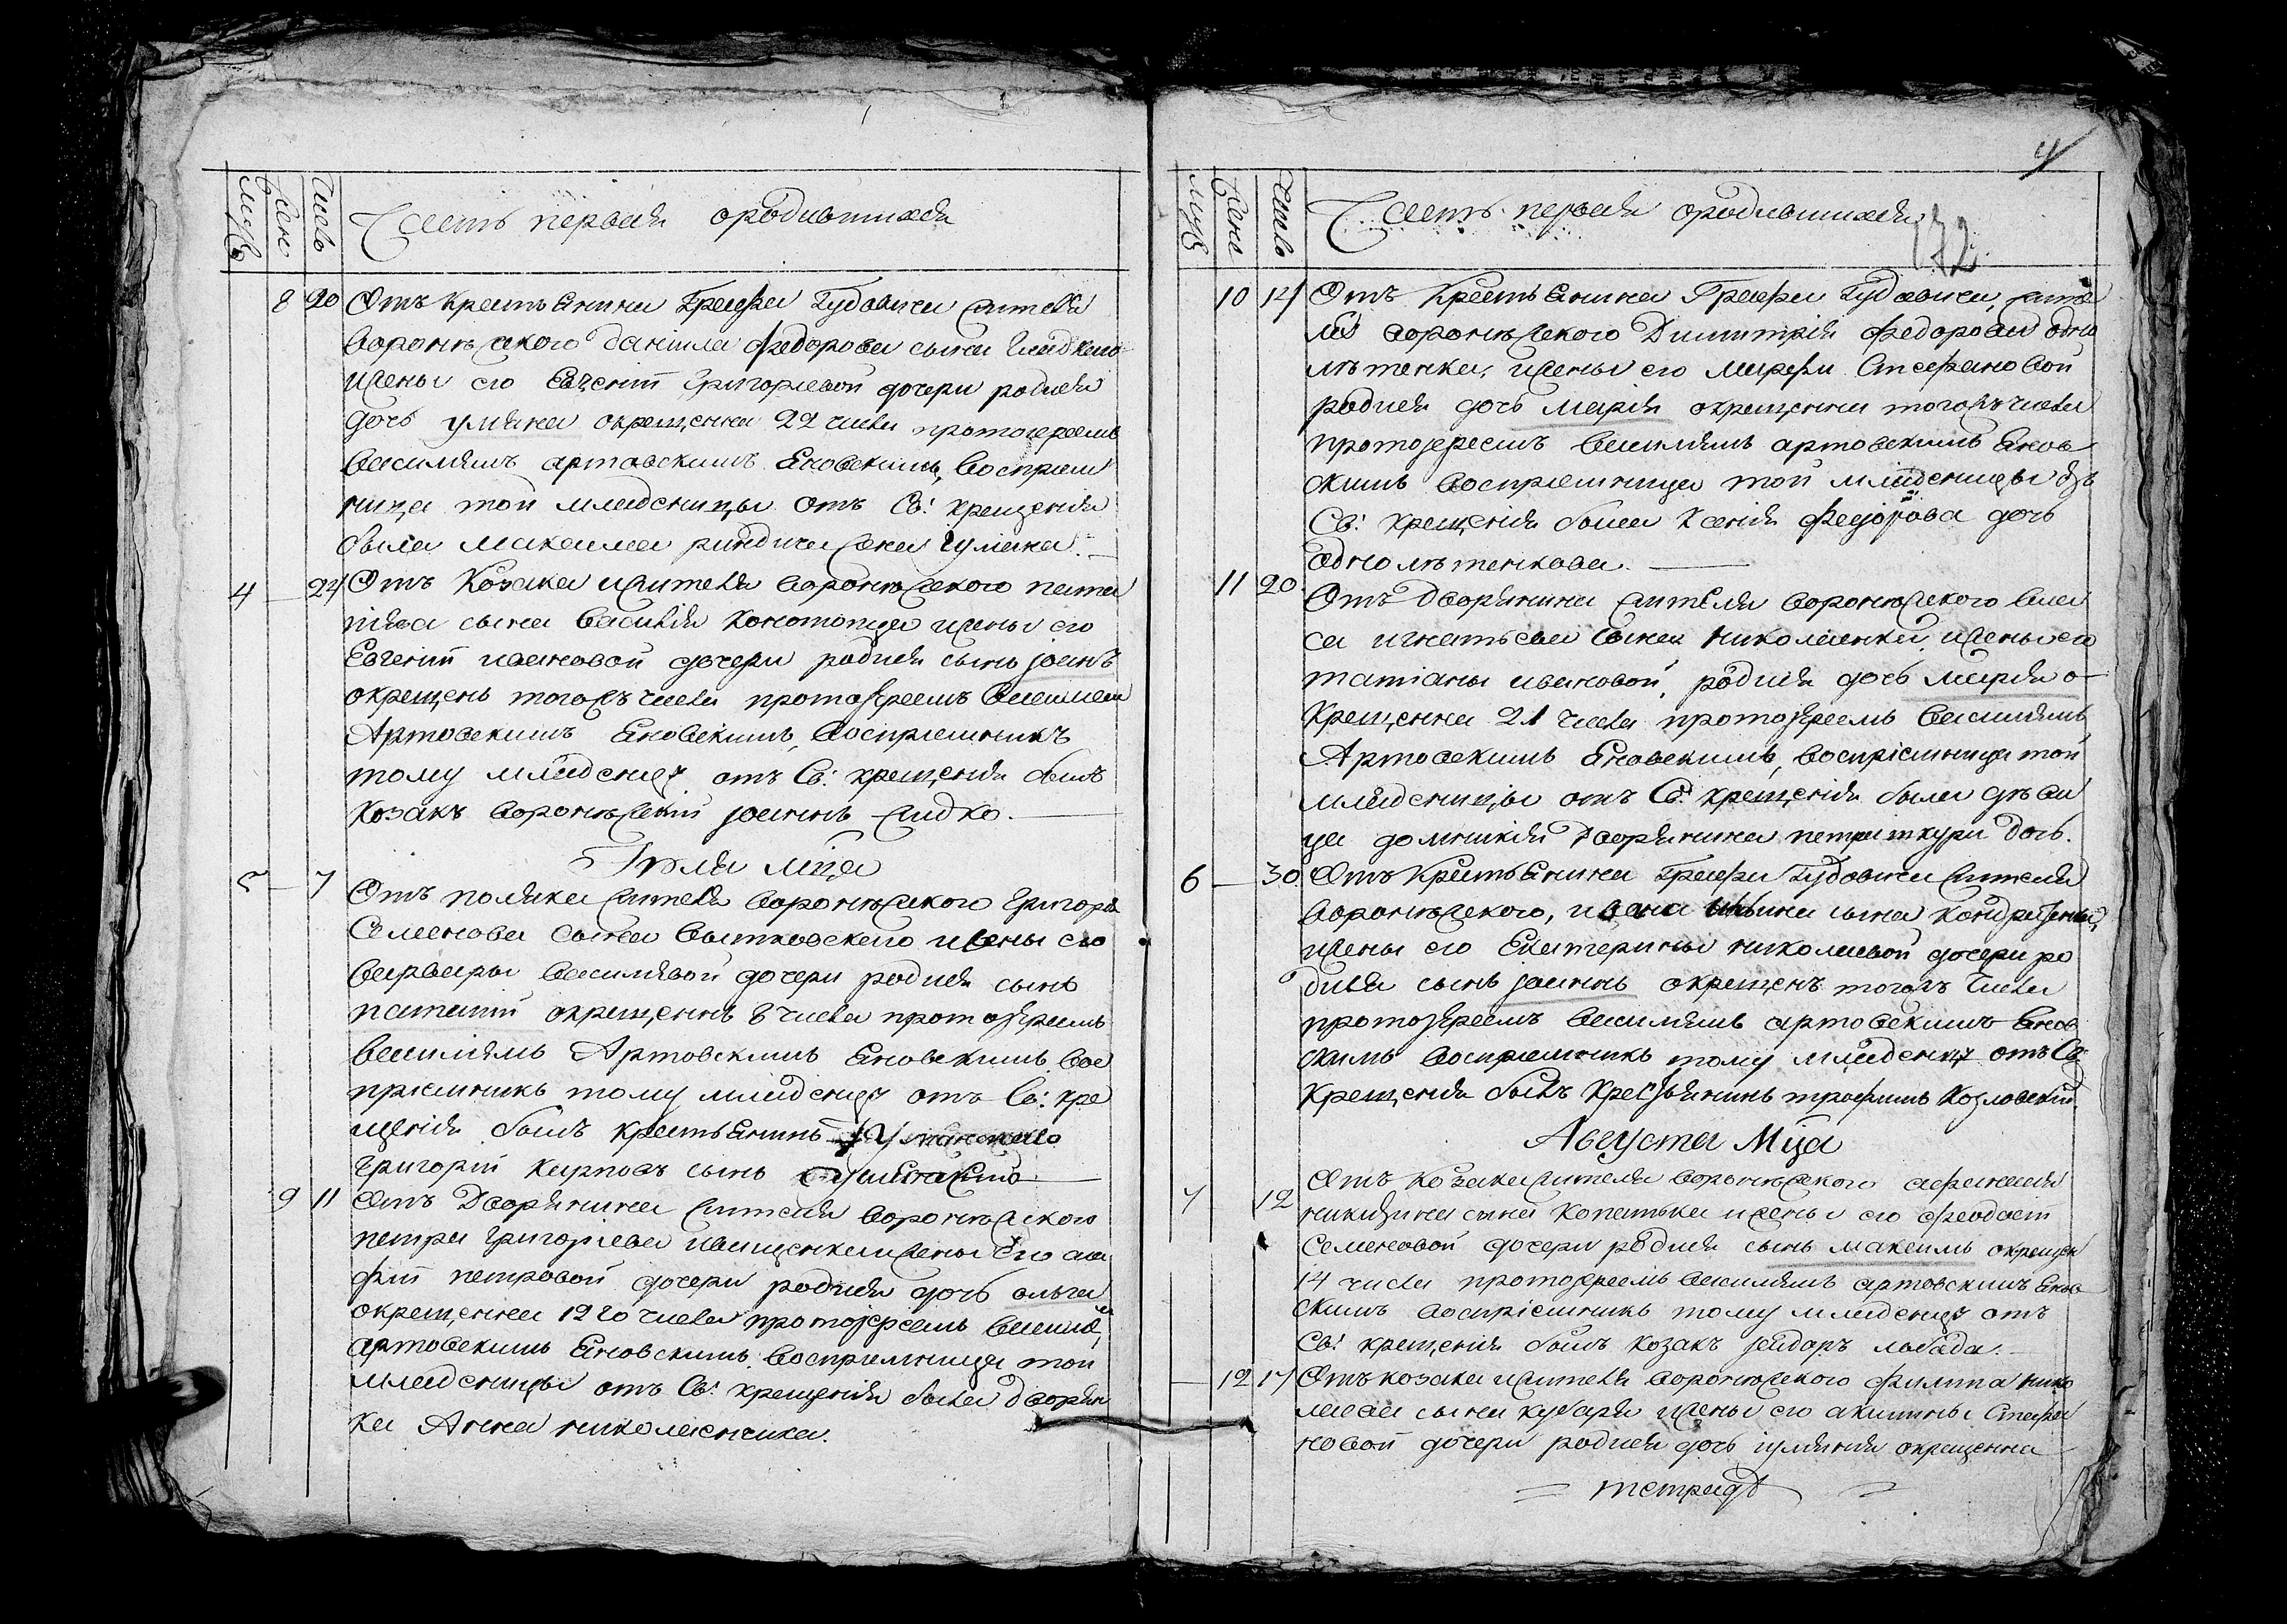 Мужъ
Жен
Число
Часть первая ородившихся
8 20 Отъ крестьянина Графа Гудовича жителя
воронѣжского данiила федорова сына
жены его Евгенiи григориевой дочери родися
дочь улияна окрещенна 22 числа протоиереемъ
василиямъ артовскимъ Еновскимъ, восприем
ница той младеницы отъ Св: крещения
была максима жена улияна.
4 — 24 Отъ козака жителя воронѣжского
сына василiя конотопца жены его
Евгенiи ивановой дочери родися сынъ јоанъ
окрещенъ тогожъ числа протоjереемъ василиемъ
Артовскимъ Еновскимъ, восприемникъ
тому младенцу отъ Св: крещения былъ
козакъ воронѣжскiй јоаннъ жидко.
Iюля мца
5 — 7
Отъ поляка жителя воронѣжского григория
Семенова сына Вытковского жены его
варвары василиявой дочери родися сынъ
окрещеннъ 8 числа протоjереемъ
василиямъ Артовскимъ Еновскимъ, вос
приемникъ тому младенцу отъ Св: кре
щения былъ крестьянинъ
григорiй карповъ сынъ
9 11 Отъ Дворянина жителя воронѣжского
петра григорiева иващенка жены его ага
фiи петровой дочери родися дочь ольга
окрещенна 12 го числа протоjереемъ василие
артовскимъ Еновскимъ, восприемница той
младеницы отъ Св: крещения была дворян
ка Анна николаенчика.
4
172
Мужъ
Жена
Число
Часть первая ородившихся
10 14 Отъ Крестьянина Графа Гудовича, жите
ля воронѣжского Димитрiя федорова одно
лѣтенка, жены его марфы Стефановой
родися дочь марiя окрещенна тогожъ числа
протоjереемъ василиямъ артовскимъ Енов
скимъ восприемница той младеницы отъ
Св: крещения была Ксенiя Федорова дочь
однолѣтенкова.
11 20
Отъ дворянина жителя воронѣжского вла
са игнатьева сына николаенка, жены его
татiаны ивановой, родися дочь марiя о
крещенна 21 числа протоjереемъ василиямъ
Артовскимъ Еновскимъ, воспрiемница той
младеницы отъ Св: крещения была дѣви
ца домникiя дворянина петра дочь.
6 — 30 Отъ Крестьянина Графа Гудовича жителя
воронѣжского, ивана сына
жены его Екатерины николаевой дочери ро
дися сынъ јоаннъ окрещенъ тогожъ числа
протоjереемъ василиямъ артовскимъ Енов
скимъ восприемникъ тому младенцу отъ Св:
крещения былъ крестьянинъ трофимъ козловскiй
Августа Мца
7 12
Отъ козака жителя воронѣжского афанасия
сына копатька жены его феодосiи
Семеновой дочери родися сынъ максимъ окрещен
14 числа протоjереемъ василиямъ артовскимъ Енов
скимъ воспрiемникъ тому младенцу отъ
Св: крещения былъ козакъ лобода.
— 12 17 Отъ козака жителя воронѣжского филипа нико
лаева сына кубаря жены его акилины Стефа
новой дочери родися дочь iулянiя окрещенна
= тетрадь =